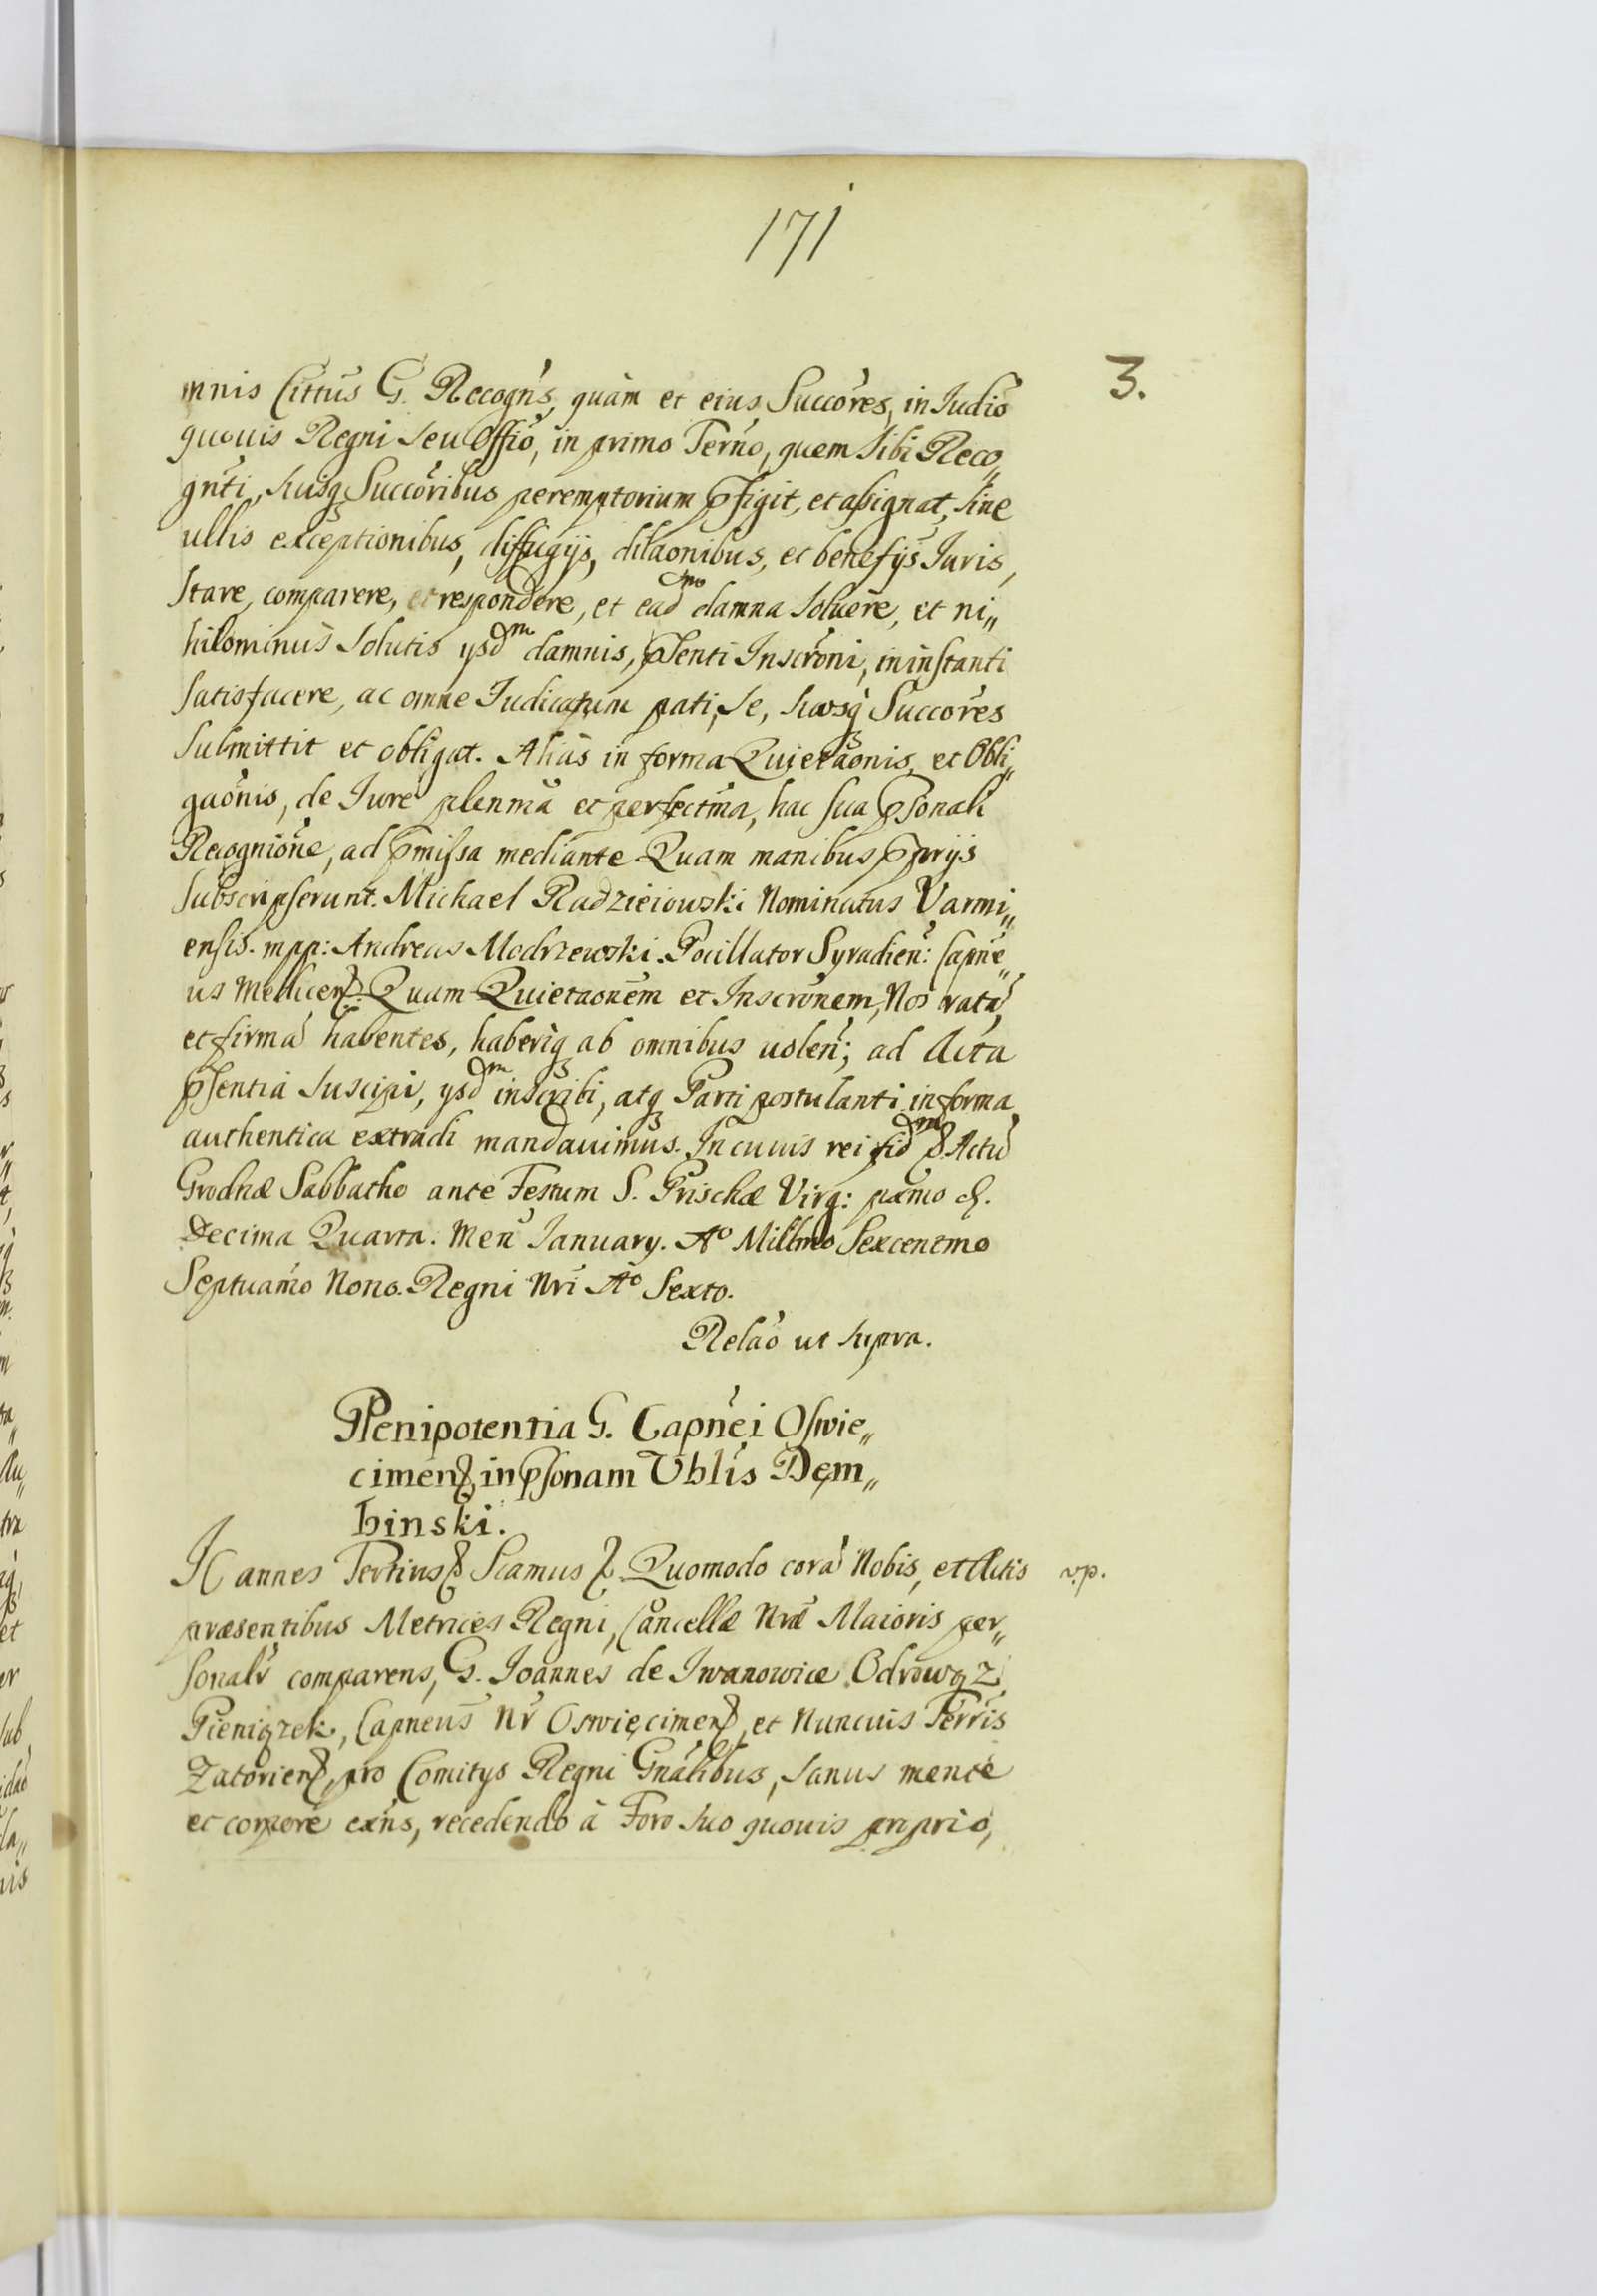 171
3.
mnis Cittus G. Recogns, quàm et eius Succores, in Iudio
quouis Regni seu Offio, in primo Terno, quem sibi Reco„
gnti, suisq Succoribus peremptorium pfigit, et assignat, sine
ullis exceptionibus, diffugijs, dilaonibus, et benefijs Iuris,
stare, comparere, et respondere, et eadm damna soluere, et ni„
hilominus solutis ysdm damnis, psenti Inscroni, in instanti
satisfacere, ac omne Iudicatum pati, se, suosq Succores
submittit et obligat. Aliàs in forma Quietaonis, et Obli„
gaonis, de Iure plenma et perfectma, hac sua psonali
Recognione, ad pmissa mediante. Quam manibus pprijs
subscripserunt. Michael Radzieiowski Nominatus Varmi„
ensis. mpp: Andreas Modrzewski. Pocillator Syradien: Capne„
us Quam Quietaonem et Inscronem, Nos rata
et firma habentes, haberiq ab omnibus uolen; ad Acta
psentia suscipi, ysdm inscribi, atq Parti postulanti in forma
authentica extradi mandauimus. In cuius rei fidm Actu
Grodnæ Sabbatho ante Festum S. Priscæ Virg: pxmo
Decima Quarta. Men January. Ao Millmo Sexcentmo
Septuamo Nono. Regni Nri Ao Sexto.
Relao ut supra.
Plenipotentia G. Capnei Oswie„
cimen in psonam Vblis Dęm„
binski.
Ioannes Tertius Scamus Quomodo cora Nobis, et Actis
vp.
præsentibus Metrices Regni, Cancellæ Nræ Maioris per„
sonalr comparens, G. Ioannes de Iwanowice Odrowąz
Pieniązek, Capneus Nr Oswięcimen, et Nuncius Terris
Zatorien, pro Comitys Regni Gnalibus, sanus mente
et corpore exns, recedendo à Foro suo quouis proprio,